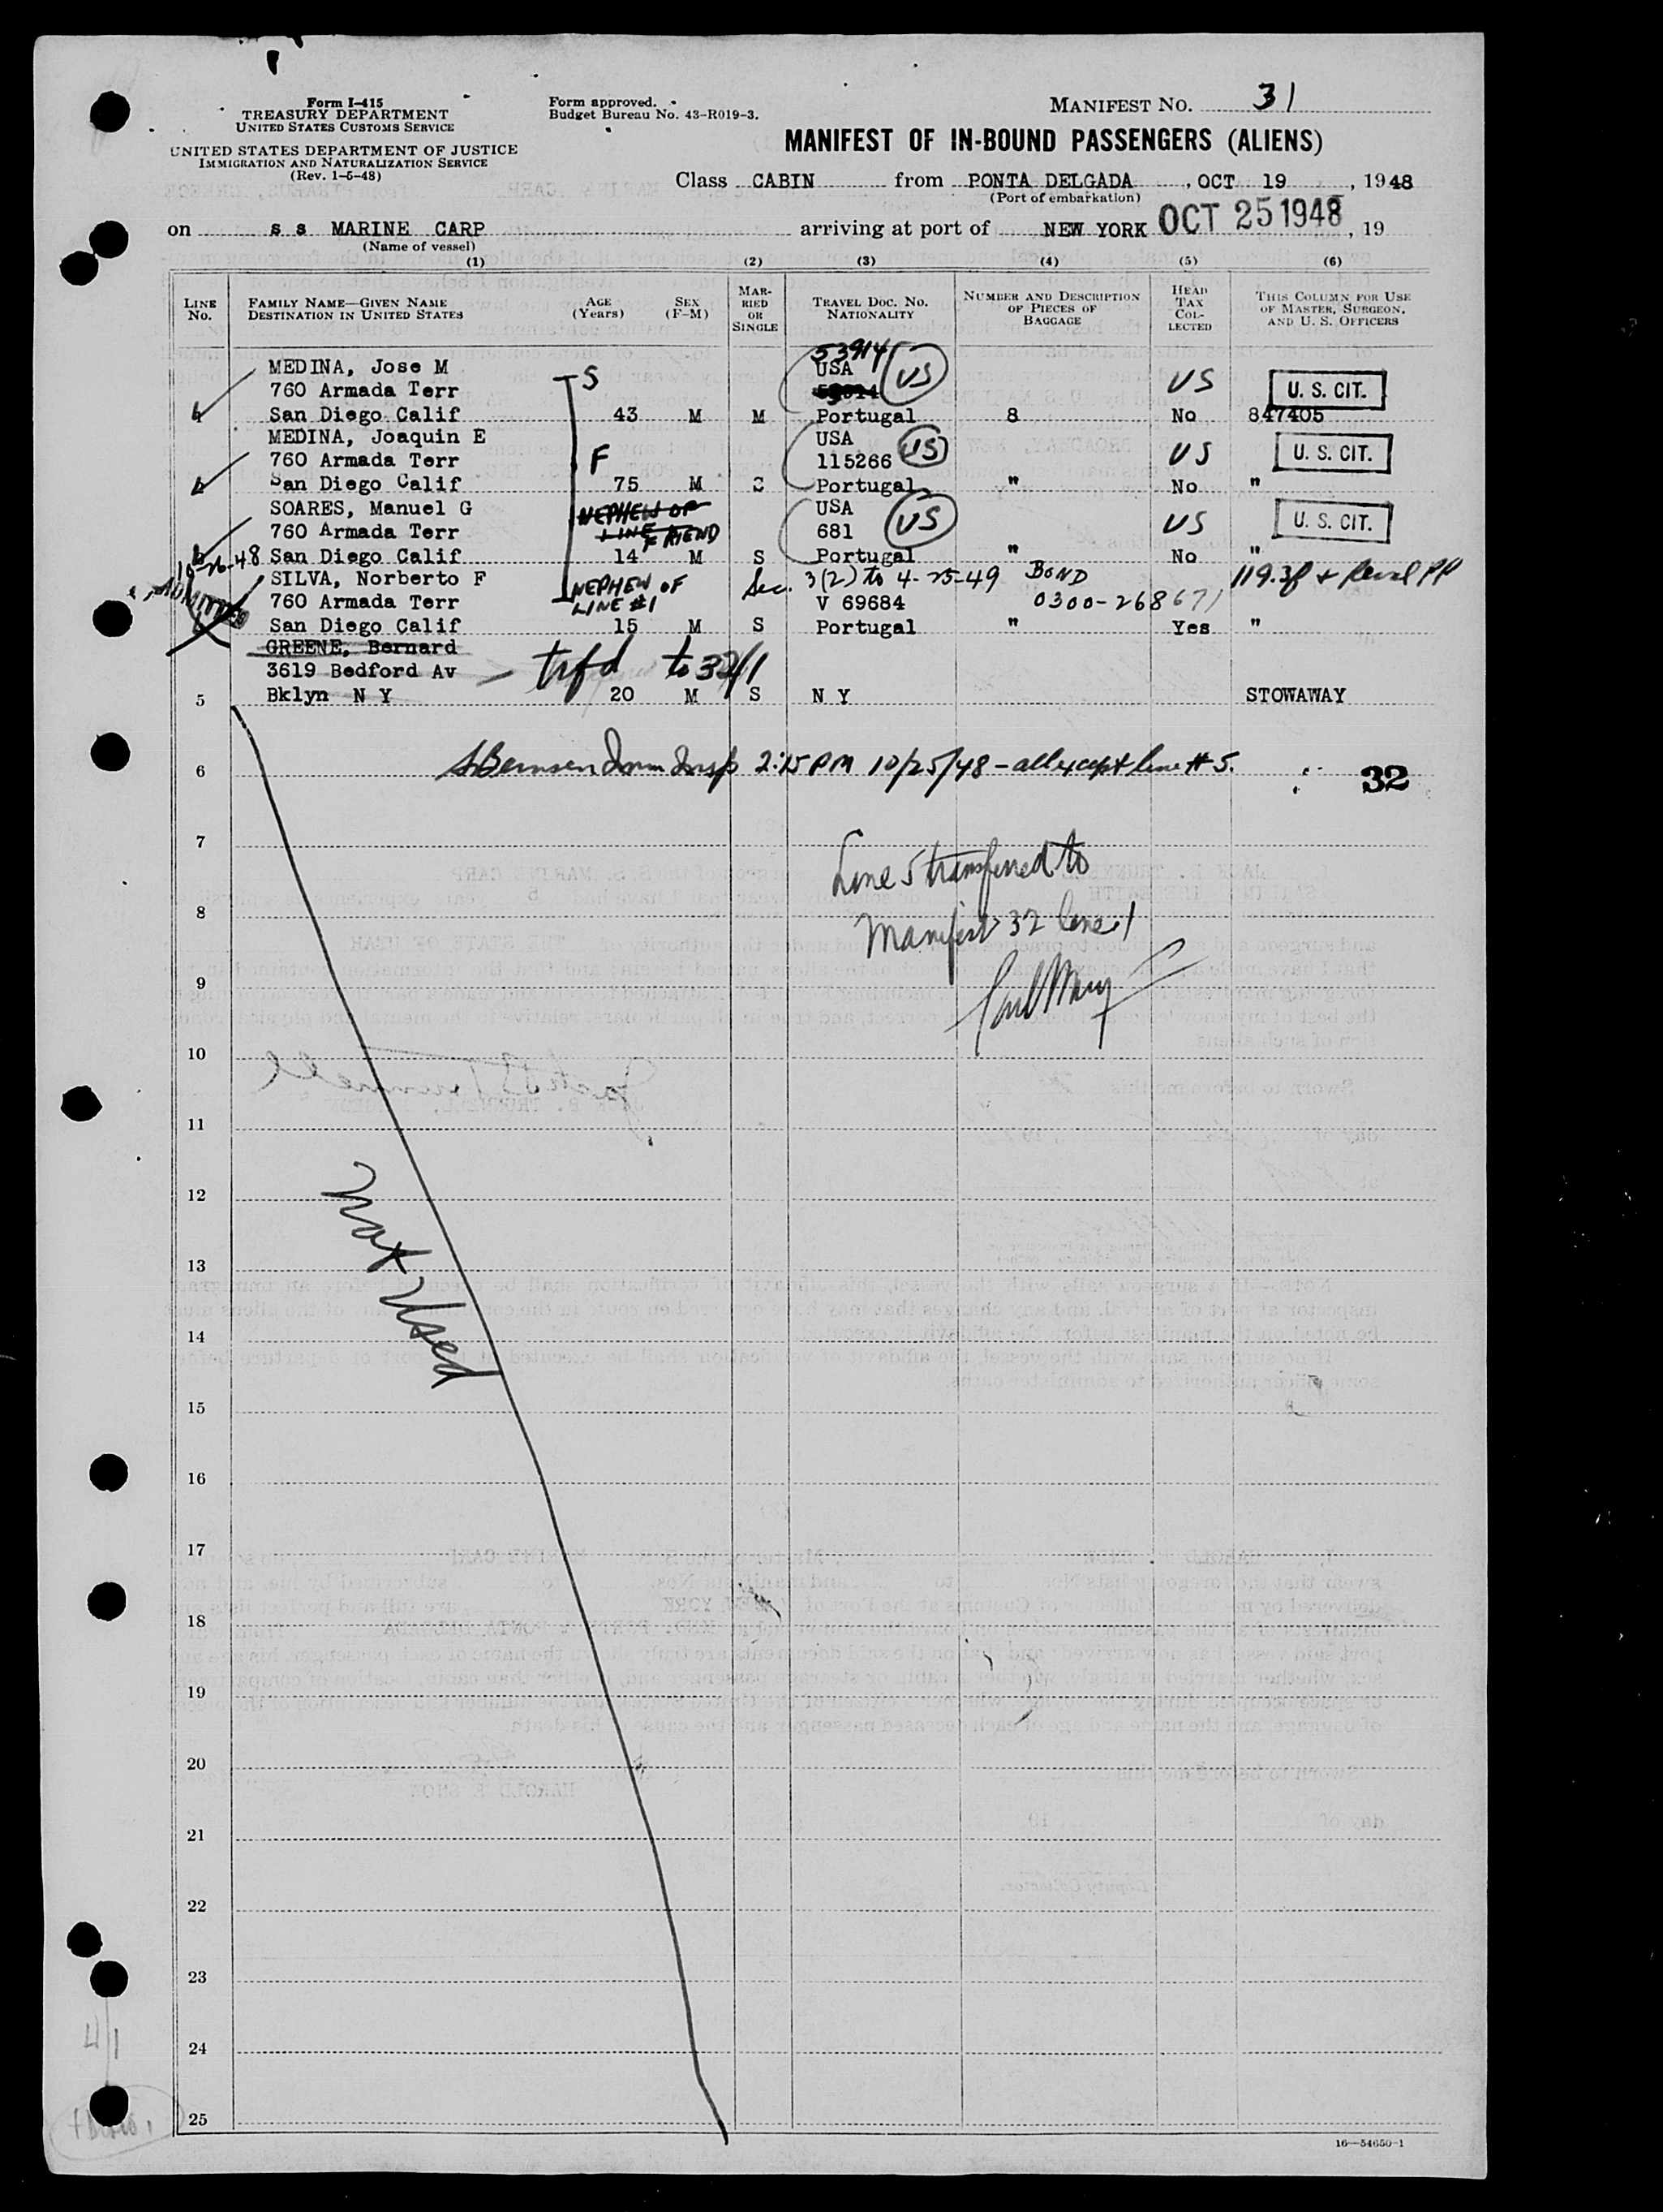 Form I-415
TREASURY DEPARTMENT
UNITED STATES CUSTOMS SERVICE
UNITED STATES DEPARTMENT OF JUSTICE
IMMIGRATION AND NATURALIZATION SERVICE
(Rev. 1-5-48)
Form approved.
Budget Bureau No. 43-R019-3.
MANIFEST NO. 31
MANIFEST OF IN-BOUND PASSENGERS (ALIENS)
Class CABIN from PONTA DELGADA, OCT 19, 1948
(Port of embarkation)
on s s MARINE CARP arriving at port of NEW YORK OCT 25 1948, 19
(Name of vessel)
(1) (2) (3) (4) (5) (6)
LINE No. FAMILY NAME—GIVEN NAME DESTINATION IN UNITED STATES AGE (Years) SEX (F-M) MARRIED OR SINGLE TRAVEL DOC. NO. NATIONALITY NUMBER AND DESCRIPTION OF PIECES OF BAGGAGE HEAD TAX COLLECTED THIS COLUMN FOR USE OF MASTER, SURGEON, AND U. S. OFFICERS
53914
MEDINA, Jose M S USA US US U. S. CIT.
760 Armada Terr
San Diego Calif 43 M M Portugal 8 No 847405
MEDINA, Joaquin E USA US US U. S. CIT.
760 Armada Terr F 115266
San Diego Calif 75 M S Portugal " No "
SOARES, Manuel G NEPHEW OF USA US US U. S. CIT.
760 Armada Terr LINE FRIEND 681
San Diego Calif 14 M S Portugal " No "
10-26-48 ADMITTED
SILVA, Norberto F NEPHEW OF Sec. 3(2) to 4-25-49 BOND
760 Armada Terr LINE #1 V 69684 0300-268671
San Diego Calif 15 M S Portugal " Yes "
GREENE, Bernard
3619 Bedford Av trfd to 32/1
5 Bklyn N Y 20 M S N Y STOWAWAY
6 Imm Insp 2:15 PM 10/25/48 - all except line #5. 32
7
Line 5 transferred to
8
Manifest 32 line 1
9
10
11
12
Not Used
13
14
15
16
17
18
19
20
21
22
23
24
25
4/1
16—54650-1